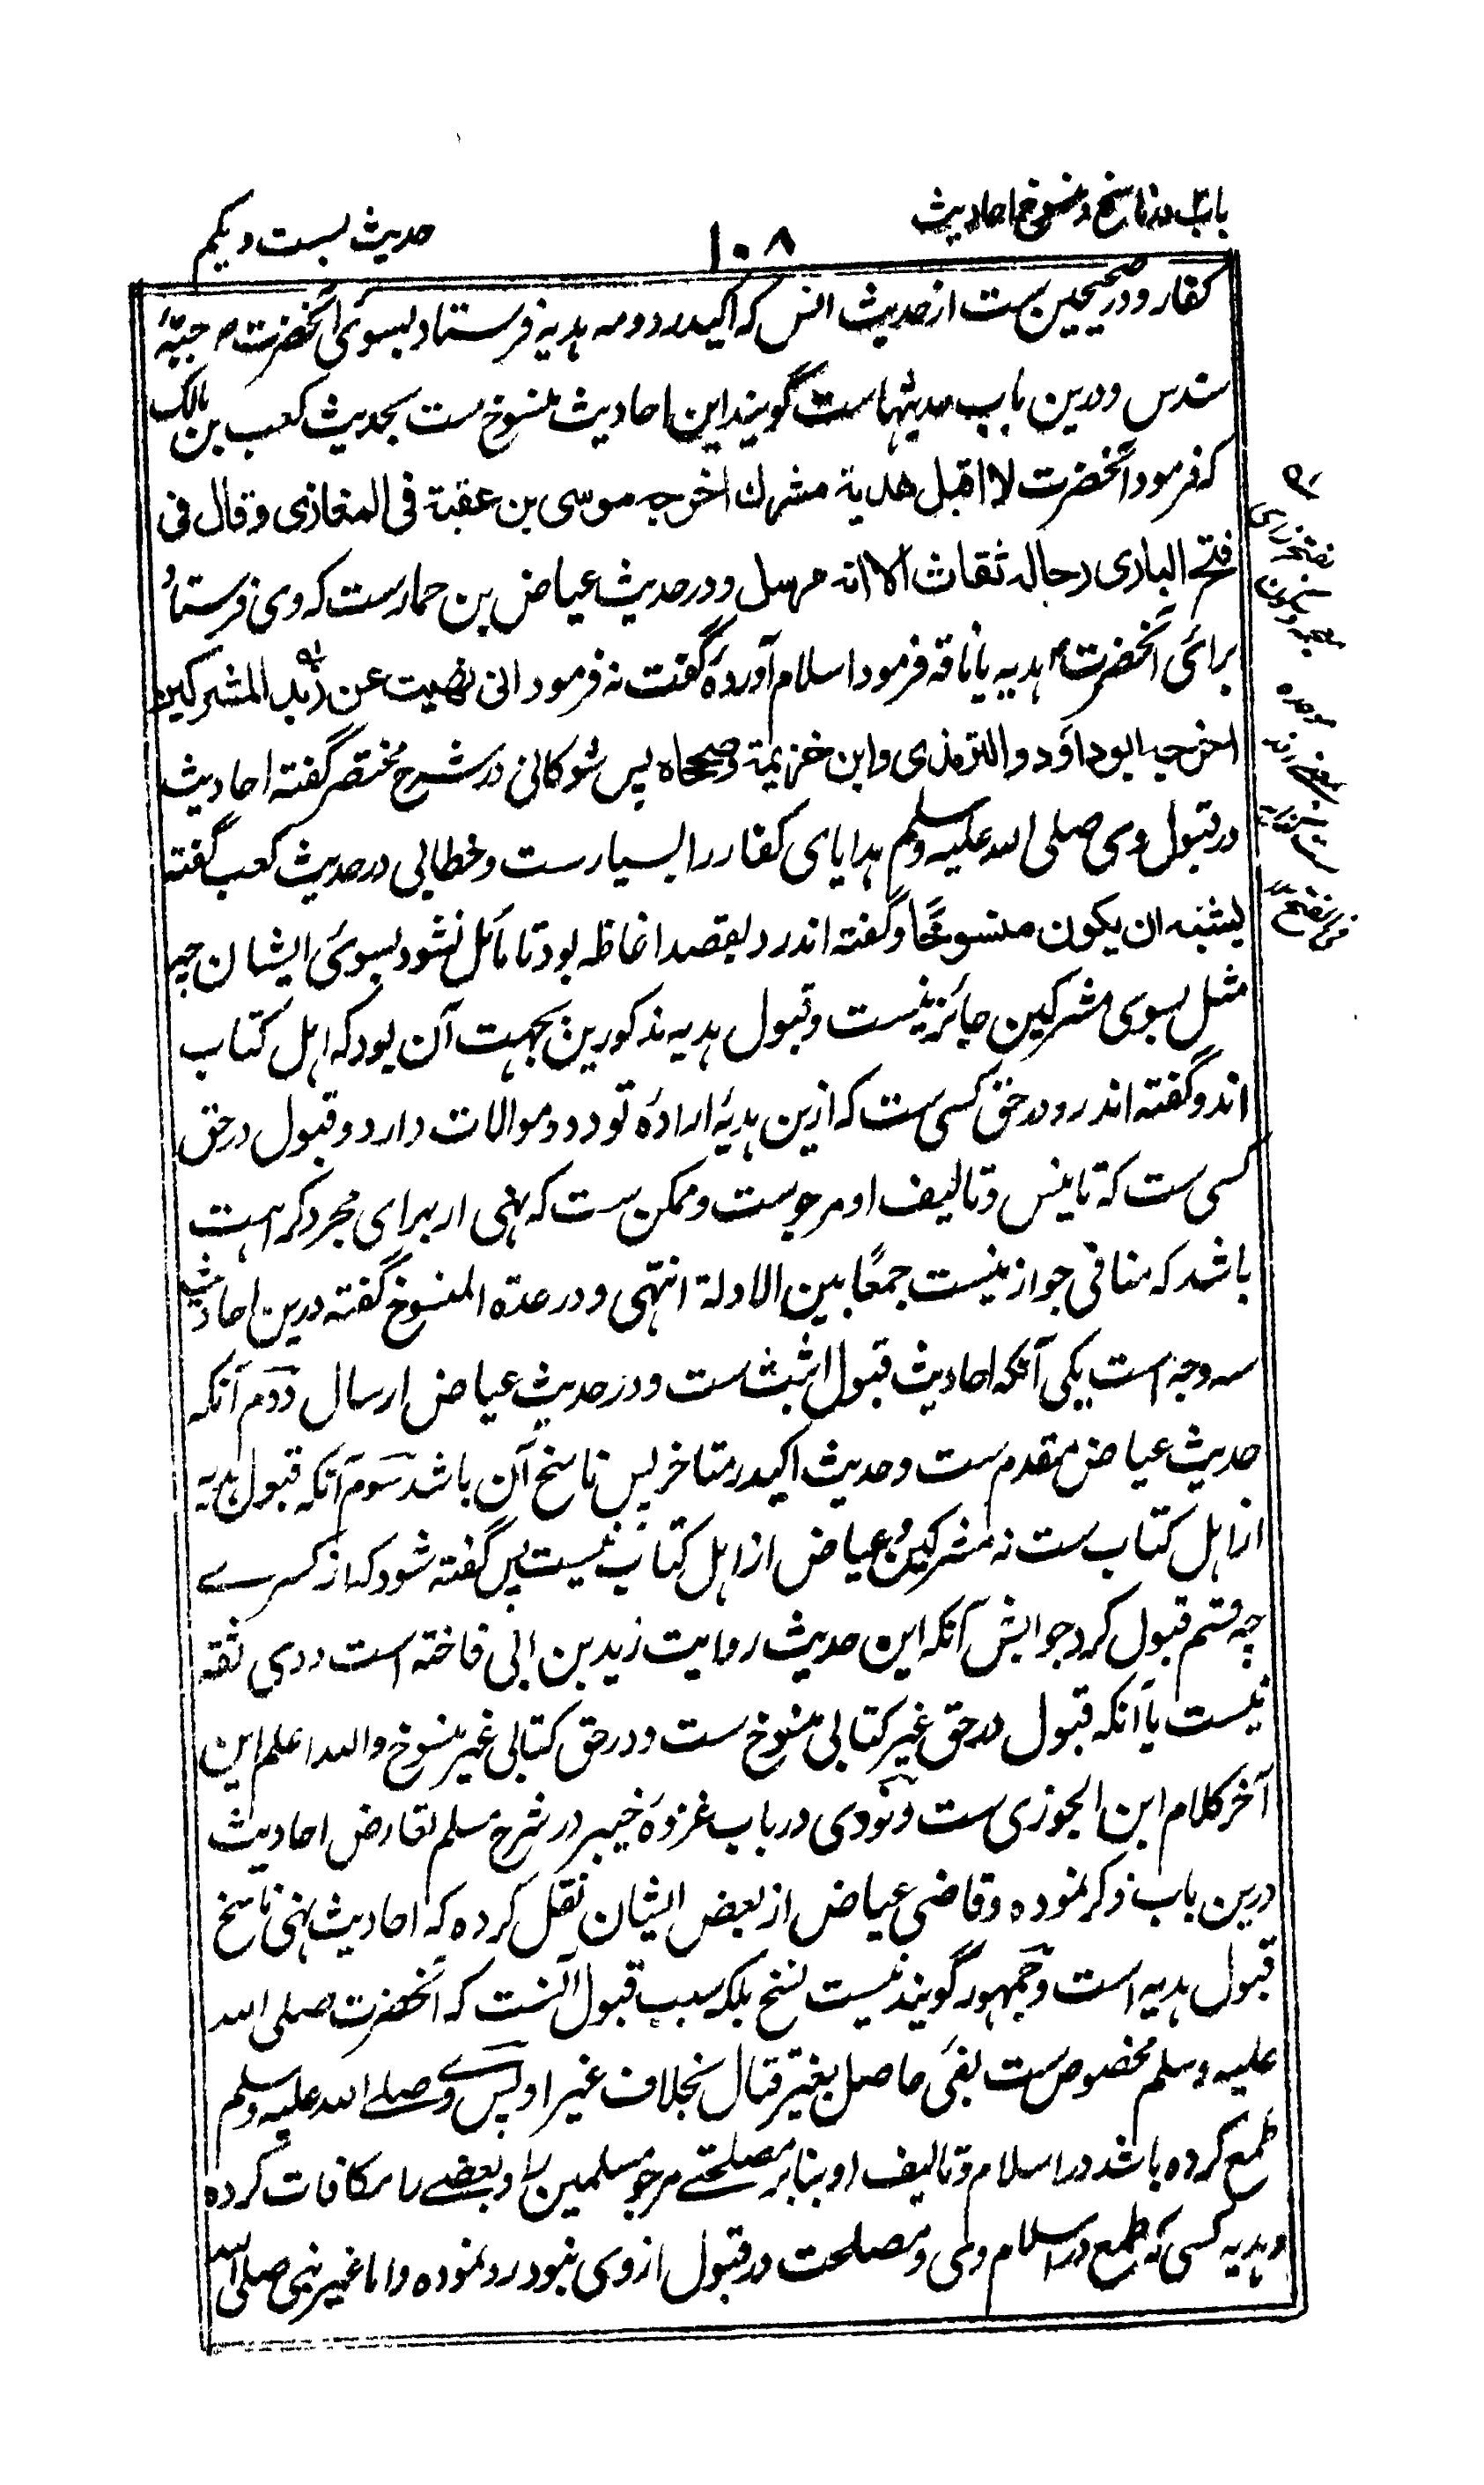 باب در ناسخ و منسوخ احادیث
۱۰۸
حدیث بست و یکم
کفار و در صحیحین ست از حدیث انس که اکیدر دومه هدیه فرستاد بسوی آنحضرت م جبّهٔ
سندس و درین باب حدیثهاست گویند این احادیث منسوخ ست بحدیث کعب بن مالک
که فرمود آنحضرت لا اقبل هدیة مشرك اخرجه موسی بن عقبة فی المغازی و قال فی
فتح الباری رجاله ثقات الا انه مرسل و در حدیث عیاض بن حمار ست که وی فرستاد
برای آنحضرت م هدیه یا ناقه فرمود اسلام آوردهٔ گفت نه فرمود انی نهیت عن زبد المشرکین
اخرجه ابوداؤد والترمذی وابن خزیمة وصححاه پس شوکانی در شرح مختصر گفته احادیث
در قبول وی صلی الله علیه وسلم هدایای کفار را بسیار ست و خطابی در حدیث کعب گفته
یشبه ان یکون منسوخًا و گفته اند رد بقصد اغاظه بود تا مائل نشود بسوی ایشان چه
مثل بسوی مشرکین جائز نیست و قبول هدیه مذکورین بجهت آن بود که اهل کتاب
اند و گفته اند رد در حق کسی ست که ازین هدیهٔ ارادهٔ تودد و موالات دارد و قبول در حق
کسی ست که تانیس و تالیف او مرجوست و ممکن ست که نهی از برای مجرد کراهت
باشد که منافی جواز نیست جمعًا بین الادلة انتهی و در عدة المنسوخ گفته درین احادیث
سه وجه است یکی آنکه احادیث قبول اثبت ست و در حدیث عیاض ارسال دوم آنکه
حدیث عیاض متقدم ست و حدیث اکیدر متاخر پس ناسخ آن باشد سوم آنکه قبول هدیه
از اهل کتاب ست نه مشرکین و عیاض از اهل کتاب نیست پس گفته شود که از کسرے
چه قسم قبول کرد جوابش آنکه این حدیث روایت زید بن ابی فاخته است و وی ثقه
نیست یا آنکه قبول در حق غیر کتابی منسوخ ست و در حق کتابی غیر منسوخ والله اعلم این
آخر کلام ابن الجوزی ست و نودی در باب غزوهٔ خیبر در شرح مسلم تعارض احادیث
درین باب ذکر نموده و قاضی عیاض از بعض ایشان نقل کرده که احادیث نهی ناسخ
قبول هدیه است و جمهور گویند نیست نسخ بلکه سبب قبول آنست که آنحضرت صلی الله
علیه وسلم مخصوص ست بفئ حاصل بغیر قتال بخلاف غیر او پس وے صلے الله علیه وسلم
طمع کرده باشد در اسلام و تالیف او بنابر مصلحتے مرجو مسلمین را و بعضے را مکافات کرده
و هدیه کسی که طمع در اسلام وی و مصلحت در قبول از وی نبود رد نموده و اما غیر نبی صلی الله